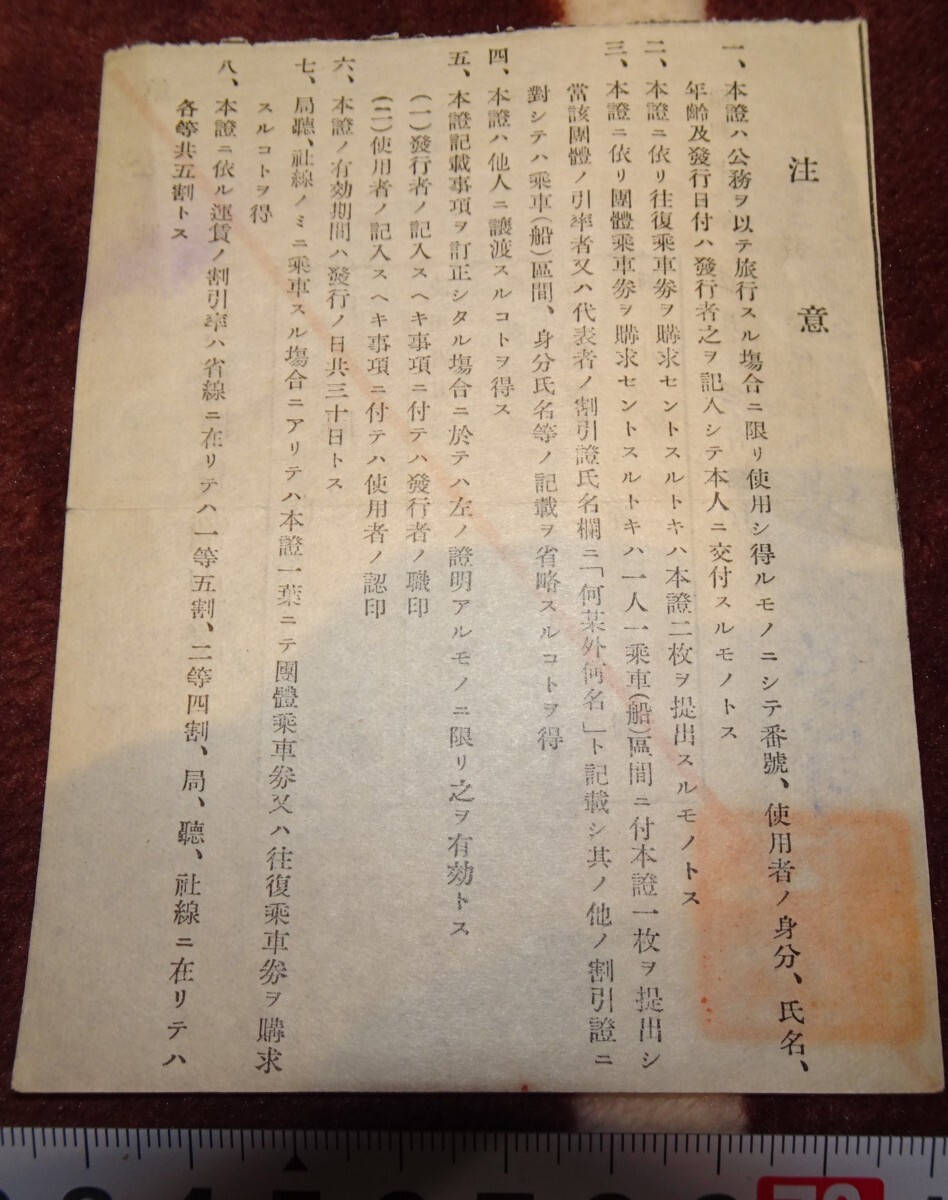 注意
一、本證ハ公務ヲ以テ旅行スル塲合ニ限リ使用シ得ルモノニシテ番號、使用者ノ身分、氏名、
年齡及發行日付ハ發行者之ヲ記入シテ本人ニ交付スルモノトス
二、本證ニ依リ往復乘車券ヲ購求セントスルトキハ本證二枚ヲ提出スルモノトス
三、本證ニ依リ團體乘車券ヲ購求セントスルトキハ一人一乘車(船)區間ニ付本證一枚ヲ提出シ
當該團體ノ引率者又ハ代表者ノ割引證氏名欄ニ「何某外何名」ト記載シ其ノ他ノ割引證ニ
對シテハ乘車(船)區間、身分氏名等ノ記載ヲ省略スルコトヲ得
四、本證ハ他人ニ讓渡スルコトヲ得ス
五、本證記載事項ヲ訂正シタル塲合ニ於テハ左ノ證明アルモノニ限リ之ヲ有効トス
(一)發行者ノ記入スヘキ事項ニ付テハ發行者ノ職印
(二)使用者ノ記入スヘキ事項ニ付テハ使用者ノ認印
六、本證ノ有効期間ハ發行ノ日共三十日トス
七、局聽、社線ノミニ乘車スル塲合ニアリテハ本證一葉ニテ團體乘車券又ハ往復乘車券ヲ購求
スルコトヲ得
八、本證ニ依ル運賃ノ割引率ハ省線ニ在リテハ一等五割、二等四割、局、聽、社線ニ在リテハ
各等共五割トス